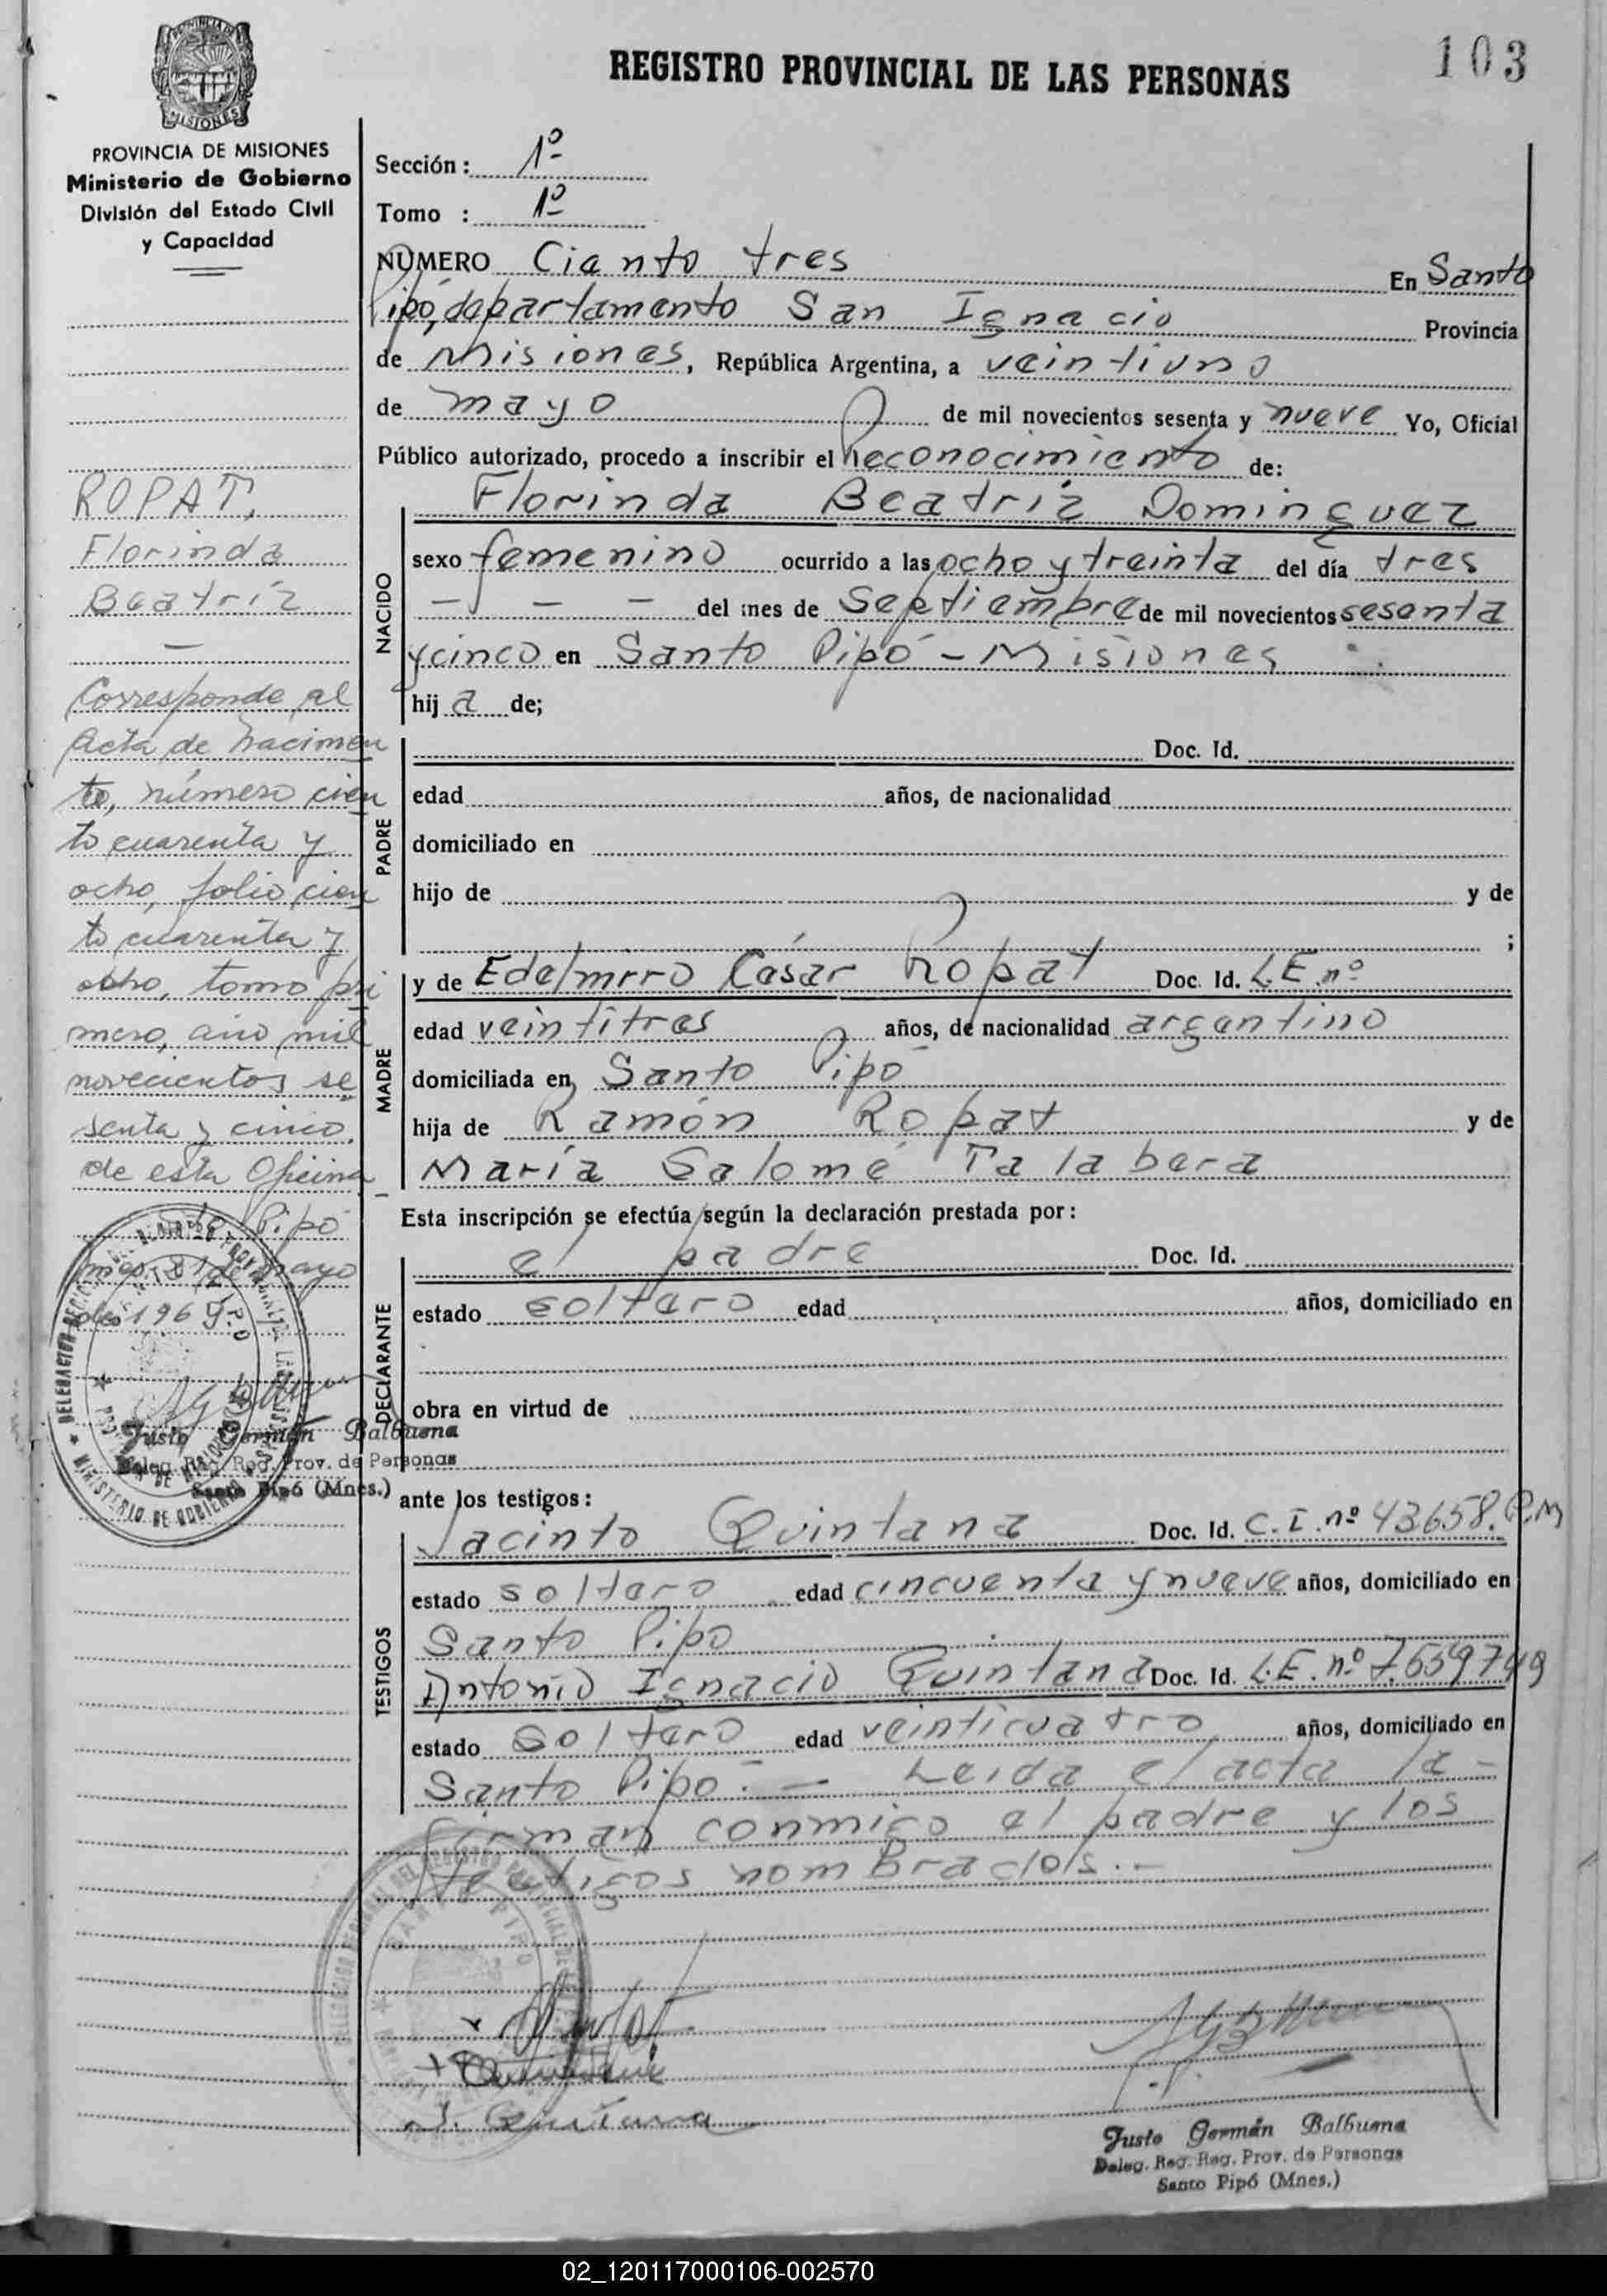 103
REGISTRO PROVINCIAL DE LAS PERSONAS
PROVINCIA DE MISIONES
Ministerio de Gobierno
División del Estado Civil
y Capacidad
ROPAT,
Florinda
Beatriz
—
Corresponde al
Acta de Nacimien
to, número cien
to cuarenta y
ocho, folio cien
to cuarenta y
ocho, tomo pri
mero, año mil
novecientos se
senta y cinco.
de esta Oficina
Pipó
Mnes. 21 de mayo
de 1969.
Justo Germán Balbuena
Deleg. Reg. Reg. Prov. de Personas
Santo Pipó (Mnes.)
Sección: 1º
Tomo : 1º
NUMERO Ciento tres En Santo
Pipó, departamento San Ignacio Provincia
de Misiones, República Argentina, a veintiuno
de mayo de mil novecientos sesenta y nueve Yo, Oficial
Público autorizado, procedo a inscribir el Reconocimiento de:
Florinda Beatriz Dominguez
NACIDO
sexo femenino ocurrido a las ocho y treinta del día tres
— — — del mes de Septiembre de mil novecientos sesenta
y cinco en Santo Pipó - Misiones
hij a de;
PADRE
Doc. Id.
edad años, de nacionalidad
domiciliado en
hijo de y de
;
MADRE
y de Edelmiro César Ropat Doc. Id. L.E. nº
edad veintitres años, de nacionalidad argentino
domiciliada en Santo Pipó
hija de Ramón Ropat y de
María Salomé Talabera
Esta inscripción se efectúa según la declaración prestada por:
DECLARANTE
el padre Doc. Id.
estado soltero edad años, domiciliado en
obra en virtud de
ante los testigos:
TESTIGOS
Jacinto Quintana Doc. Id. C.I. nº 43658. P.M
estado soltero edad cincuenta y nueve años, domiciliado en
Santo Pipó
Antonio Ignacio Quintana Doc. Id. L.E. nº 7.559.749
estado soltero edad veinticuatro años, domiciliado en
Santo Pipó. — Leida el acta la -
firman conmigo el padre y los
testigos nombrados.-
J. Quintana
Justo Germán Balbuena
Deleg. Reg. Reg. Prov. de Personas
Santo Pipó (Mnes.)
02_120117000106-002570